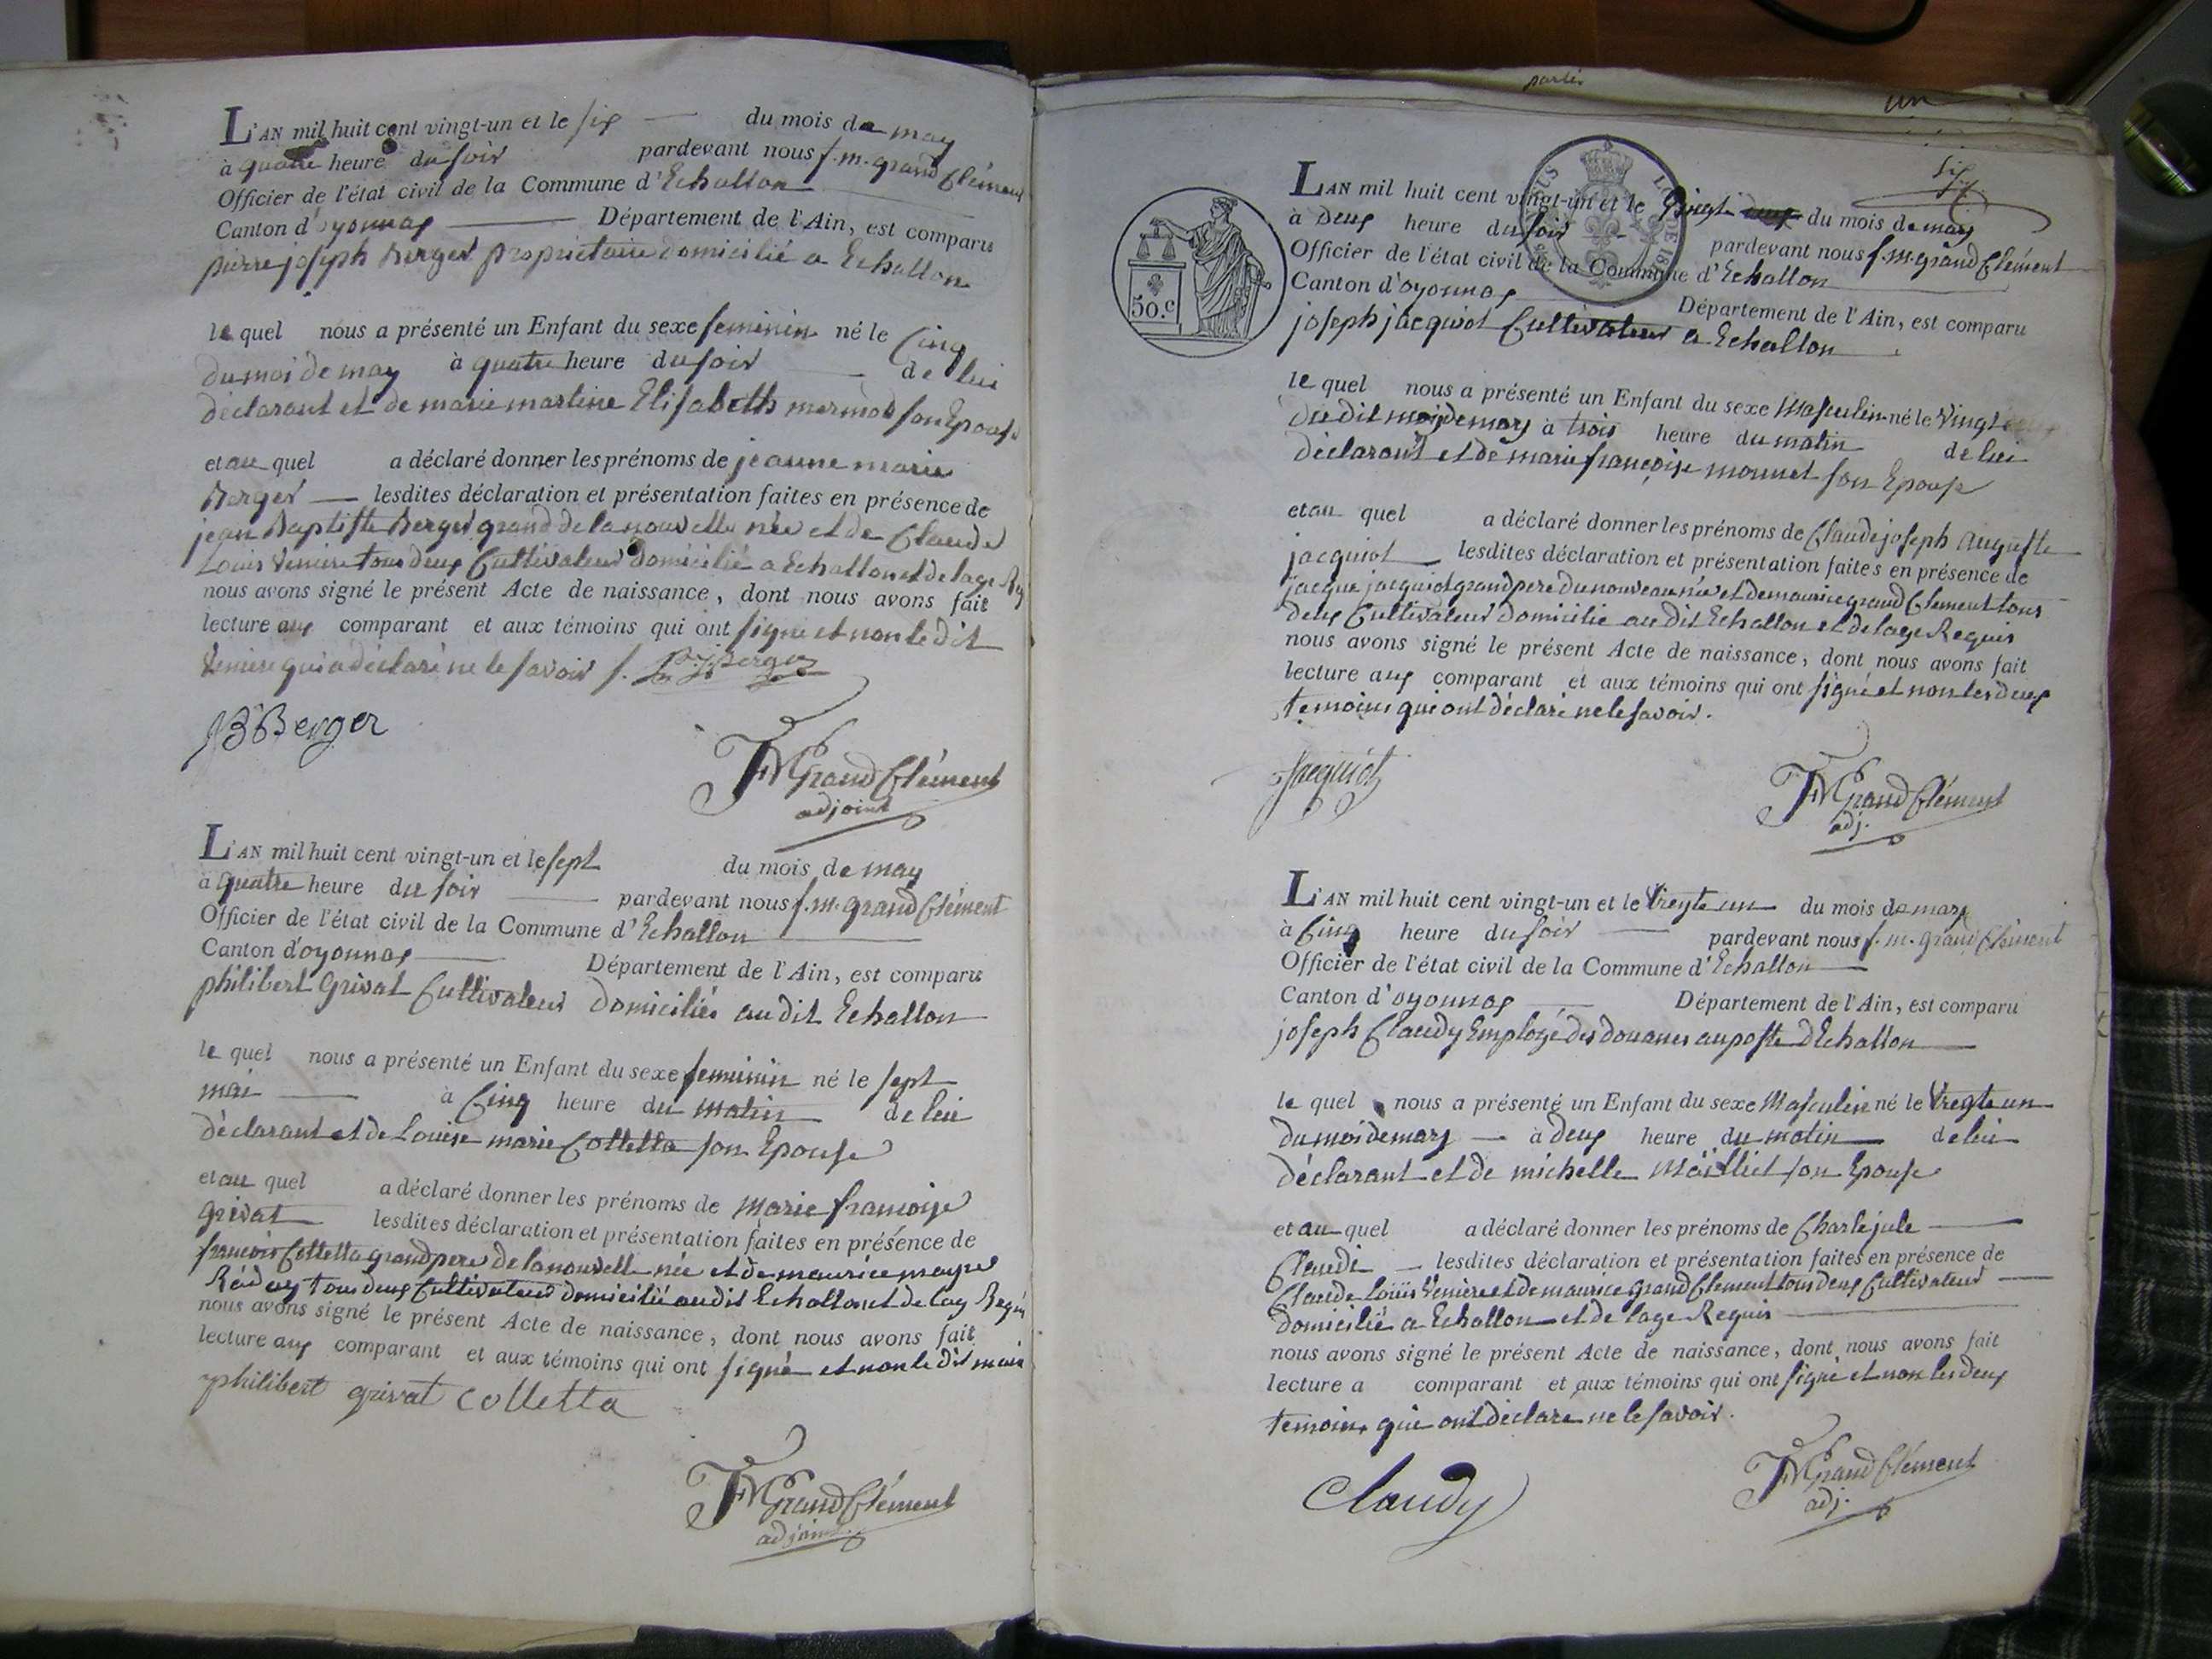 L'AN mil huit cent vingt-un et le six du mois de may
à quatre heure du soir pardevant nous f. m. grand Clément
Officier de l'état civil de la Commune d'Echallon
Canton d'oyonnax Département de l'Ain, est comparu
pierre joseph Berger propriétaire domicilié a Echallon
le quel nous a présenté un Enfant du sexe feminin né le Cinq
du moi de may à quatre heure du soir de lui
déclarant et de marie martine Elisabeth mermod son Epouse
et au quel a déclaré donner les prénoms de jeanne marie
Berger lesdites déclaration et présentation faites en présence de
jean Baptiste Berger grand de la nouvelle née et de Claude
Louis Veniere tous deux Cultivateur domicilié a Echallon et de lage Rq
nous avons signé le présent Acte de naissance, dont nous avons fait
lecture aux comparant et aux témoins qui ont signe et non le dit
Veniere qui a déclaré ne le savoir f. P. J. Berger
JB Berger
FM Grand Clément
adjoint
L'AN mil huit cent vingt-un et le sept du mois de may
à quatre heure du soir pardevant nous f. m. grand Clément
Officier de l'état civil de la Commune d'Echallon
Canton d'oyonnax Département de l'Ain, est comparu
philibert Grivat Cultivateur domiciliés au dit Echallon
le quel nous a présenté un Enfant du sexe feminin né le sept
mai à Cinq heure du matin de lui
déclarant et de Louise marie Colletta son Epouse
et au quel a déclaré donner les prénoms de Marie françoise
Grivat lesdites déclaration et présentation faites en présence de
francois Colletta grand pere de la nouvell née et de maurice
tous deux Cultivateur domicilié au dit Echallon et de lag Requis
nous avons signé le présent Acte de naissance, dont nous avons fait
lecture aux comparant et aux témoins qui ont signé et non le dit
philibert grivat colletta
FM Grand Clément
adjoint
un
six
50.c
L'AN mil huit cent vingt-un et le Vingt deux du mois de mars
à Deux heure du soir pardevant nous f. m. grand Clément
Officier de l'état civil de la Commune d'Echallon
Canton d'oyonnax Département de l'Ain, est comparu
joseph jacquiot Cultivateur a Echallon
le quel nous a présenté un Enfant du sexe Masculin né le Vingt
du dit moi de mars à trois heure du matin de lui
déclarant et de marie françoise monnet son Epouse
et au quel a déclaré donner les prénoms de Claude joseph Auguste
jacquiot lesdites déclaration et présentation faites en présence de
jacque jacquiot grand pere du nouveau née et de maurice grand Clement tous
deux Cultivateur domicilie au dit Echallon et de lage Requis
nous avons signé le présent Acte de naissance, dont nous avons fait
lecture aux comparant et aux témoins qui ont signé et non les deux
temoins qui ont déclaré ne le savoir.
Jacquiot
FM Grand Clément
adj.
L'AN mil huit cent vingt-un et le trente un du mois de mars
à Cinq heure du soir pardevant nous f. m. grand Clément
Officier de l'état civil de la Commune d'Echallon
Canton d'oyonnax Département de l'Ain, est comparu
joseph Claudy Employé des douanes au poste d'Echallon
le quel nous a présenté un Enfant du sexe Masculin né le trente un
du moi de mars à deux heure du matin de lui
déclarant et de michelle Maillet son Epouse
et au quel a déclaré donner les prénoms de Charle jule
Claudi lesdites déclaration et présentation faites en présence de
Claude Louis Veniere et de maurice grand Clement tous deux Cultivateur
domicilié a Echallon et de lage Requis
nous avons signé le présent Acte de naissance, dont nous avons fait
lecture a comparant et aux témoins qui ont signé et non les deux
temoins qui ont déclare ne le savoir.
Claudy
FM Grand Clément
adj.